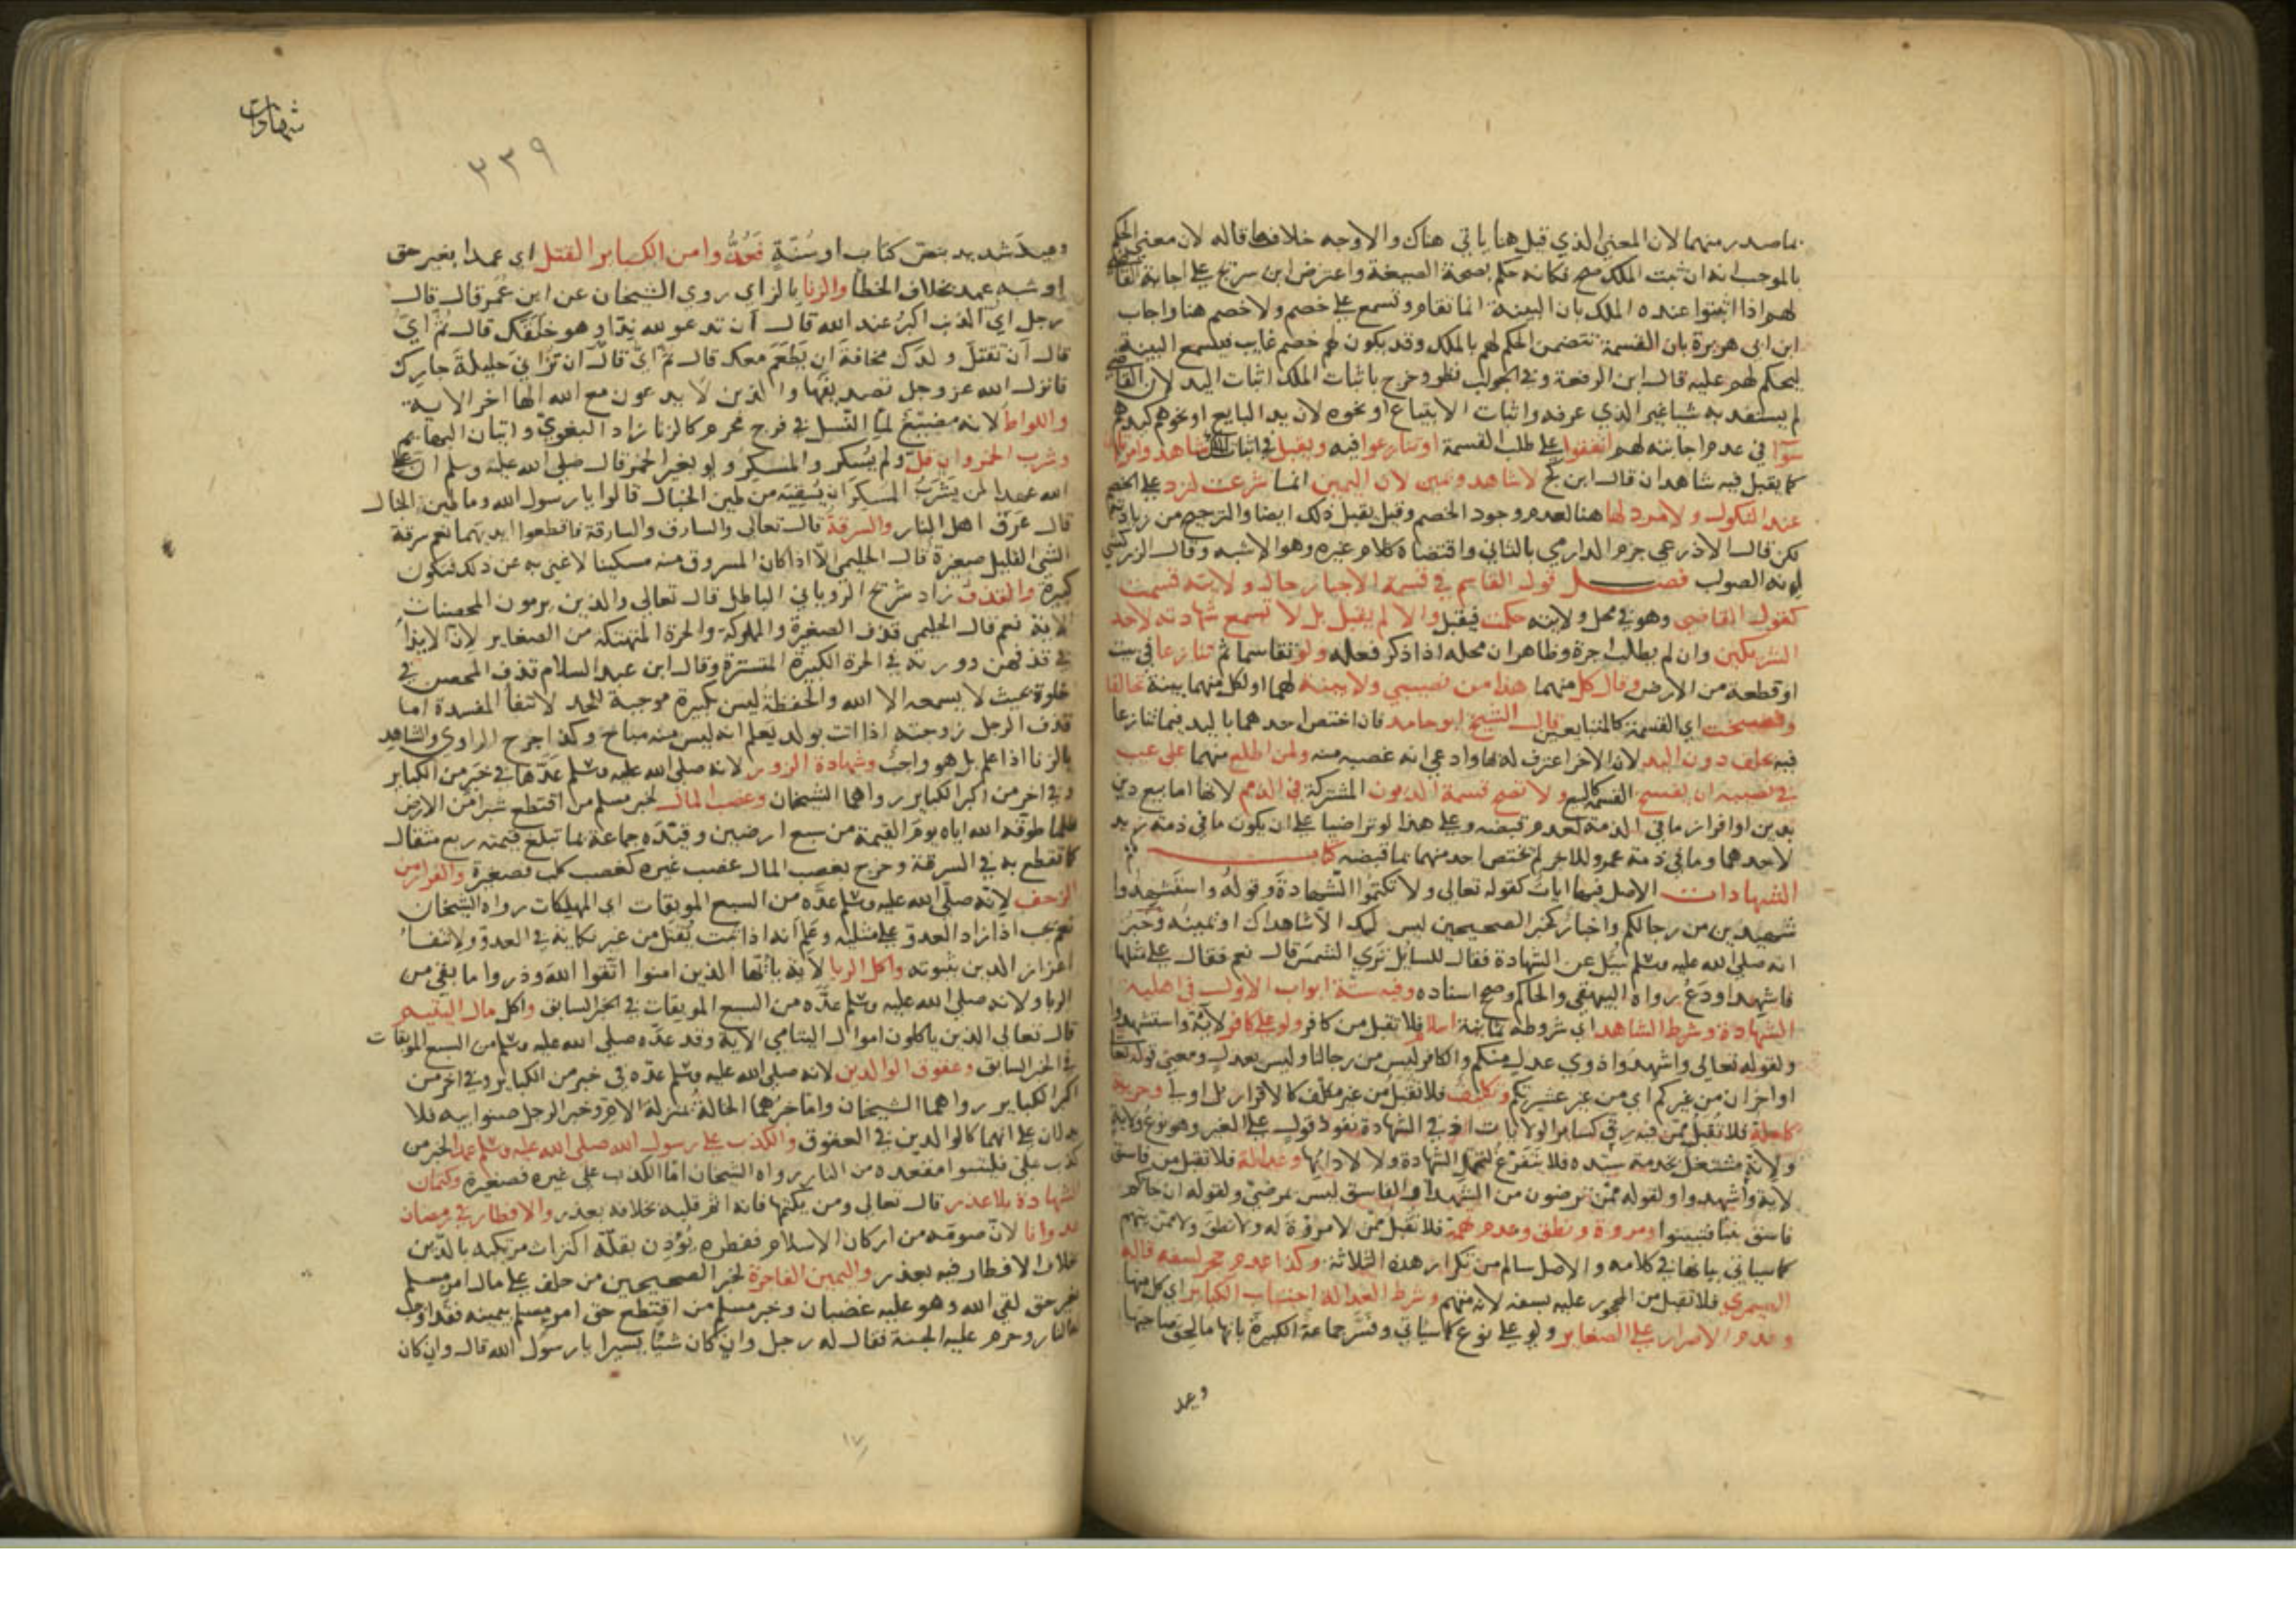 بما صدر منهما لان المعنى الذي قيل هنا ياتي هناك والاوجه خلاف ما قاله لان معنى الحكم
بالموجب انه ان ثبت الملك صح فكانه حكم بصحة الصيغة واعترض ابن سريج على اجابة القاضي
لهم اذا اثبتوا عنده الملك بان البينة انما تقام وتسمع على خصم ولا خصم هنا واجاب
ابن ابي هريرة بان القسمة تتضمن الحكم لهم بالملك وقد يكون لهم خصم غايب فيسمع البينة
ليحكم لهم عليه قال ابن الرفعة وفي الجواب نظر وخرج باثبات الملك اثبات اليد لان القاضي
لم يستفد به شيا غير الذي عرفه واثبات الابتياع او نحوه لان يد البايع او نحوه كيدهم
سوآ في عدم اجابته لهم اتفقوا على طلب القسمة او تنازعوا فيه ويقبل في اثبات الملك شاهد وامراتان
كما يقبل فيه شاهدان قال ابن كج لا شاهد ويمين لان اليمين انما شرعت لترد على الخصم
عند النكول ولا مرد لها هنا لعدم وجود الخصم وقيل يقبل ذلك ايضا والترجيح من زيادته
لكن قال الاذرعي جزم الدارمي بالثاني واقتضاه كلام غيره وهو الاشبه وقال الزركشي
انه الصواب فصل قول القاسم في قسمة الاجبار حال ولايته قسمت
كقول القاضي وهو في محل ولايته حكمت فيقبل والا لم يقبل بل لا تسمع شهادته لاحد
الشريكين وان لم يطلب اجرة وظاهر ان محله اذا ذكر فعله ولو تقاسما ثم تنازعا في بيت
او قطعة من الارض وقال كل منهما هذا من نصيبي ولا بينة لهما او لكل منهما بينة تحالفا
وفسخت اي القسمة كالمتبايعين قال الشيخ ابو حامد فان اختص احدهما باليد فيما تنازعا
فيه حلف ذو اليد لان الاخر اعترف له بها وادعى انه غصبه منه ولمن اطلع منهما على عيب
في نصيبه ان يفسخ القسمة كالبيع ولا تصح قسمة الديون المشتركة في الذمم لانها اما بيع دين
بدين او افراز ما في الذمة لعدم قبضه وعلى هذا لو تراضيا على ان يكون ما في ذمة زيد
لاحدهما وما في ذمة عمرو للاخر لم يختص احد منهما بما قبضه كتاب
الشهادات الاصل فيها ايات كقوله تعالى ولا تكتموا الشهادة وقوله واستشهدوا
شهيدين من رجالكم واخبار كخبر الصحيحين ليس لك الا شاهداك او يمينه وخبر
انه صلى الله عليه وسلم سيل عن الشهادة فقال للسايل ترى الشمس قال نعم فقال على مثلها
فاشهد او دع رواه البيهقي والحاكم وصحح اسناده وفيه ستة ابواب الاول في اهلية
الشهادة وشرط الشاهد اي شروطه ثمانية اسلام فلا تقبل من كافر ولو على كافر لاية واستشهدوا
ولقوله تعالى واشهدوا ذوي عدل منكم والكافر ليس من رجالنا وليس بعدل ومعنى قوله تعالى
او اخران من غيركم اي من غير عشيرتكم وتكليف فلا تقبل من غير مكلف كالاقرار بل اولى وحرية
كاملة فلا تقبل ممن فيه رق كساير الولايات اذ في الشهادة نفوذ قول على الغير وهو نوع ولاية
ولانه مشتغل بخدمة سيده فلا يتفرغ لتحمل الشهادة ولا لادايها وعدالة فلا تقبل من فاسق
لاية واشهدوا ولقوله ممن ترضون من الشهداء والفاسق ليس بمرضي ولقوله ان جاكم
فاسق بنبا فتبينوا ومروة ونطق وعدم تهمة فلا تقبل ممن لا مروة له ولا نطق ولا ممن يتهم
كما سياتي بيانها في كلامه والاصل سالم من تكرار هذه الثلاثة وكذا عدم حجر لسفه قاله
الصيمري فلا تقبل من المحجور عليه بسفه لانه متهم وشرط العدالة اجتناب الكباير اي كل منها
وعدم الاصرار على الصغاير ولو على نوع كما سياتي وفسر جماعة الكبيرة بانها ما لحق صاحبها
وعيد
شهادات
٣٣٩
وعيد شديد بنص كتاب او سنة فعد وا من الكباير القتل اي عمدا بغير حق
او شبه عمد بخلاف الخطأ والزنا بالزاي روى الشيخان عن ابن عمر قال قال
رجل اي الذنب اكبر عند الله قال ان تدعو لله ندا وهو خلقك قال ثم اي
قال ان تقتل ولدك مخافة ان يطعم معك قال ثم اي قال ان تزاني حليلة جارك
فانزل الله عز وجل تصديقها والذين لا يدعون مع الله الها اخر الاية
واللواط لانه مضيع لما النسل في فرج محرم كالزنا زاد البغوي واتيان البهايم
وشرب الخمر وان قل ولم يسكر والمسكر ولو بغير الخمر قال صلى الله عليه وسلم ان على
الله عهدا لمن يشرب المسكر ان يسقيه من طين الخبال قالوا يا رسول الله وما طين الخبال
قال عرق اهل النار والسرقة قال تعالى والسارق والسارقة فاقطعوا ايديهما نعم سرقة
الشي القليل صغيرة قال الحليمي الا اذا كان المسروق منه مسكينا لا غنى به عن ذلك فتكون
كبيرة والقذف زاد شريح الروياني الباطل قال تعالى والذين يرمون المحصنات
الاية نعم قال الحليمي قذف الصغيرة والمملوكة والحرة المتهتكة من الصغاير لان الايذا
في قذفهن دونه في الحرة الكبيرة المتسترة وقال ابن عبد السلام قذف المحصن في
خلوة بحيث لا يسمعه الا الله والحفظة ليس بكبيرة موجبة للحد لانتفا المفسدة اما
قذف الرجل زوجته اذا اتت بولد يعلم انه ليس منه مباح وكذا جرح الراوي والشاهد
بالزنا اذا علم بل هو واجب وشهادة الزور لانه صلى الله عليه وسلم عدها في خبر من الكباير
وفي اخر من اكبر الكباير رواهما الشيخان وغصب المال لخبر مسلم من اقتطع شبرا من الارض
ظلما طوقه الله اياه يوم القيمة من سبع ارضين وقيده جماعة بما تبلغ قيمته ربع مثقال
كما تقطع به في السرقة وخرج بغصب المال غصب غيره كغصب كلب فصغيرة والفرار من
الزحف لانه صلى الله عليه وسلم عده من السبع الموبقات اي المهلكات رواه الشيخان
نعم يجب اذا زاد العدو على مثليه وعلم انه اذا ثبت يقتل من غير نكاية في العدو ولانتفا
اعزاز الدين بثبوته واكل الربا لاية يا ايها الذين امنوا اتقوا الله وذروا ما بقي من
الربا ولانه صلى الله عليه وسلم عده من السبع الموبقات في الخبر السابق واكل مال اليتيم
قال تعالى الذين ياكلون اموال اليتامى الاية وقد عده صلى الله عليه وسلم من السبع الموبقات
في الخبر السابق وعقوق الوالدين لانه صلى الله عليه وسلم عده في خبر من الكباير وفي اخر من
اكبر الكباير رواهما الشيخان واما خبرهما الخالة بمنزلة الام وخبر الرجل صنو ابيه فلا
يدلان على انهما كالوالدين في العقوق والكذب على رسول الله صلى الله عليه وسلم عمدا لخبر من
كذب علي فليتبوا مقعده من النار رواه الشيخان اما الكذب على غيره فصغيرة وكتمان
الشهادة بلا عذر قال تعالى ومن يكتمها فانه اثم قلبه بخلافه بعذر والافطار في رمضان
عدوانا لان صومه من اركان الاسلام ففطره يوذن بقلة اكتراث مرتكبه بالدين
بخلاف الافطار فيه بعذر واليمين الفاجرة لخبر الصحيحين من حلف على مال امر مسلم
بغير حق لقي الله وهو عليه غضبان وخبر مسلم من اقتطع حق امر مسلم بيمينه فقد اوجب
له النار وحرم عليه الجنة فقال له رجل وان كان شيا يسيرا يا رسول الله قال وان كان